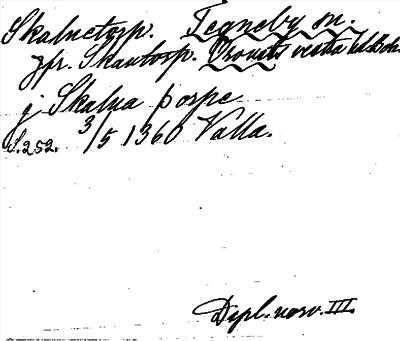 Skalnetorp. Tegneby sn.
jfr. Skantorp. Orousts vestra hd. Boh.
j Skalna þorpe
S. 252. 3/5 1360 Valla.
Dipl. norv. III.